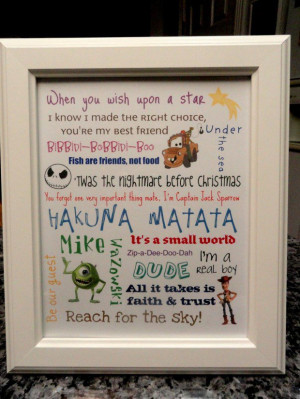 When you wish upon a star
I know I made the right choice,
you're my best friend
Under the sea
Bibbidi-Bobbidi-Boo
Fish are friends, not food
'Twas the nightmare before Christmas
You forgot one very important thing mate, I'm Captain Jack Sparrow
HAKUNA MATATA
Mike Wazowski
It's a small world
Zip-a-Dee-Doo-Dah
I'm a real boy
DUDE
Be our guest
All it takes is
faith & trust
Reach for the sky!